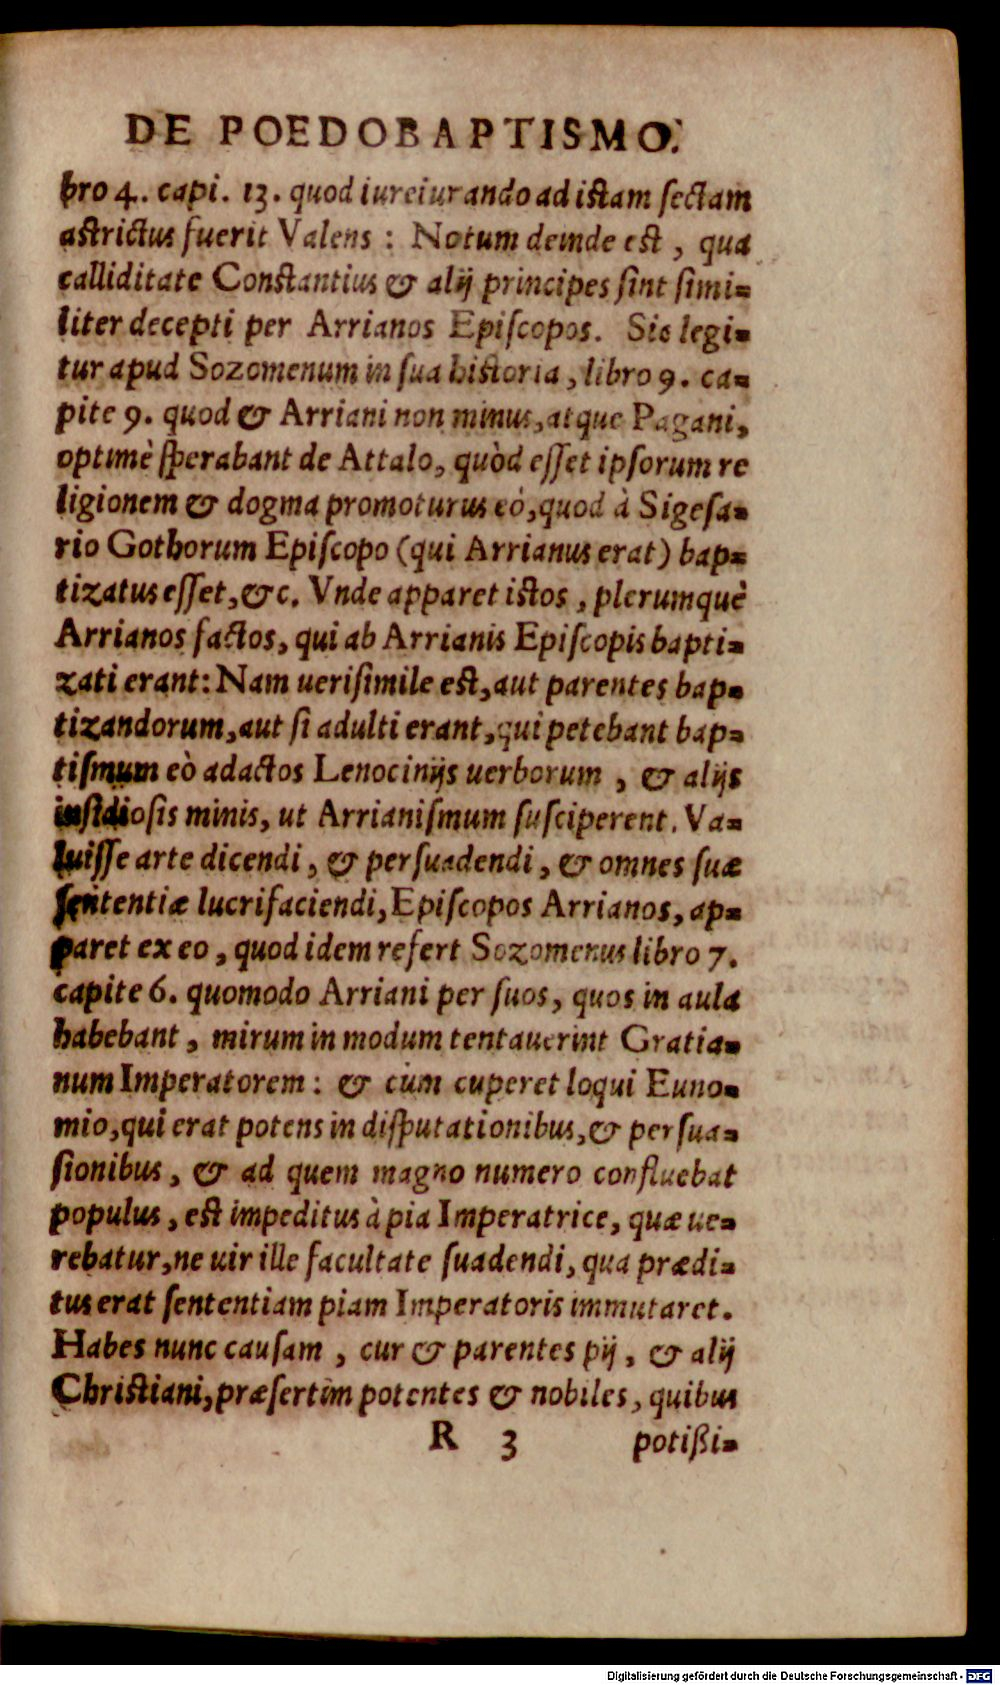 DE POEDOBAPTISMO.
bro 4. capi. 13. quod iureiurando ad istam sectam
astrictus fuerit Valens : Notum deinde est, qua
calliditate Constantius & alij principes sint simi-
liter decepti per Arrianos Episcopos. Sic legi-
tur apud Sozomenum in sua historia, libro 9. ca-
pite 9. quod & Arriani non minus, atque Pagani,
optimè sperabant de Attalo, quòd esset ipsorum re
ligionem & dogma promoturus eò, quod à Sigesa-
rio Gothorum Episcopo (qui Arrianus erat) bap-
tizatus esset, &c. Vnde apparet istos, plerumquè
Arrianos factos, qui ab Arrianis Episcopis bapti-
zati erant: Nam uerisimile est, aut parentes bap-
tizandorum, aut si adulti erant, qui petebant bap-
tismum eò adactos Lenocinijs uerborum, & alijs
insidiosis minis, ut Arrianismum susciperent. Va-
luisse arte dicendi, & persuadendi, & omnes suæ
sententiæ lucrifaciendi, Episcopos Arrianos, ap-
paret ex eo, quod idem refert Sozomenus libro 7.
capite 6. quomodo Arriani per suos, quos in aula
habebant, mirum in modum tentauerint Gratia-
num Imperatorem : & cùm cuperet loqui Euno-
mio, qui erat potens in disputationibus, & persua-
sionibus, & ad quem magno numero confluebat
populus, est impeditus à pia Imperatrice, quæ ue-
rebatur, ne uir ille facultate suadendi, qua prædi-
tus erat sententiam piam Imperatoris immutaret.
Habes nunc causam, cur & parentes pij, & alij
Christiani, præsertim potentes & nobiles, quibus
R 3 potißi-
Digitalisierung gefördert durch die Deutsche Forschungsgemeinschaft - DFG